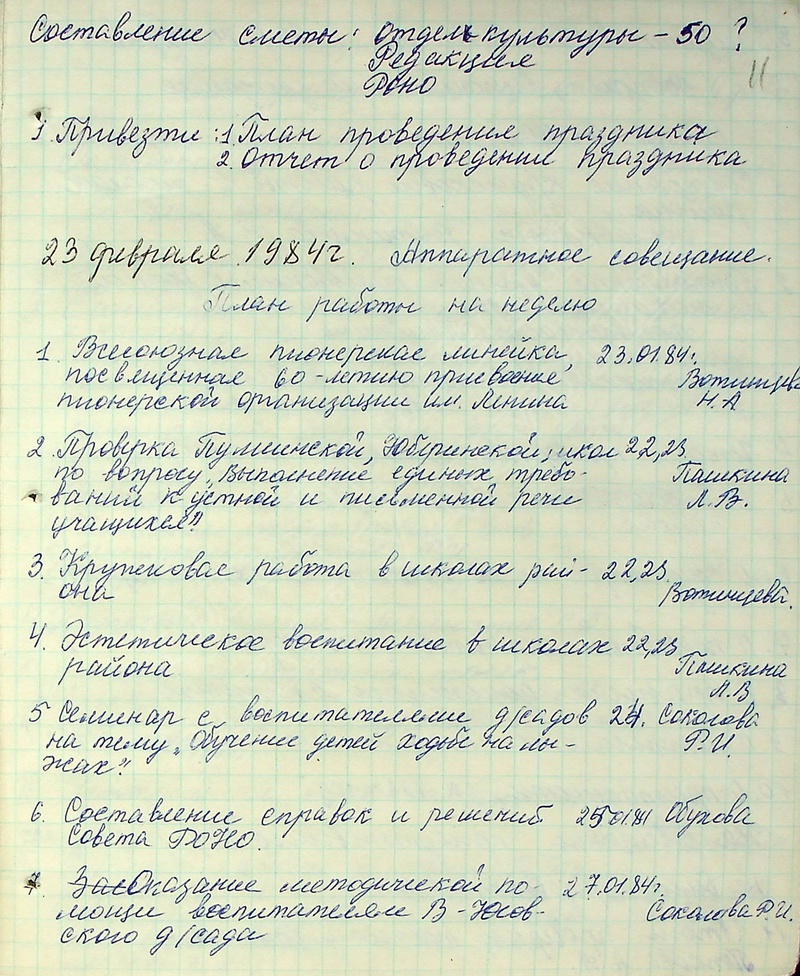 Составление сметы: Отдел культуры – 50 ?
Редакция
Роно
11
3 Привезти: 1 План проведения праздника
2. Отчет о проведении праздника
23 февраля 1984г. Аппаратное совещание.
План работы на неделю
1. Всесоюзная пионерская линейка, 23.01.84г.
посвященная 60-летию присвоение Вотинцева
пионерской организации им. Ленина Н.А
2. Проверка Пумсинской, школ 22,23
по вопросу „Выполнение единых требо- Пашкина
ваний к устной и письменной речи Л.В.
учащихся"
3. Кружковая работа в школах рай- 22,23
она Вотинцева.
4. Эстетическое воспитание в школах 22,23
района Пашкина
Л.В
5 Семинар с воспитателями д/садов 24. Соколова
на тему „Обучение детей ходьбе на лы- Р.И.
жах".
6. Составление справок и решений 25 01.84 Обухова
Совета РОНО.
7. Оказание методической по- 27.01.84г.
мощи воспитателям В-Юсов- Соколова Р.И.
ского д/сада